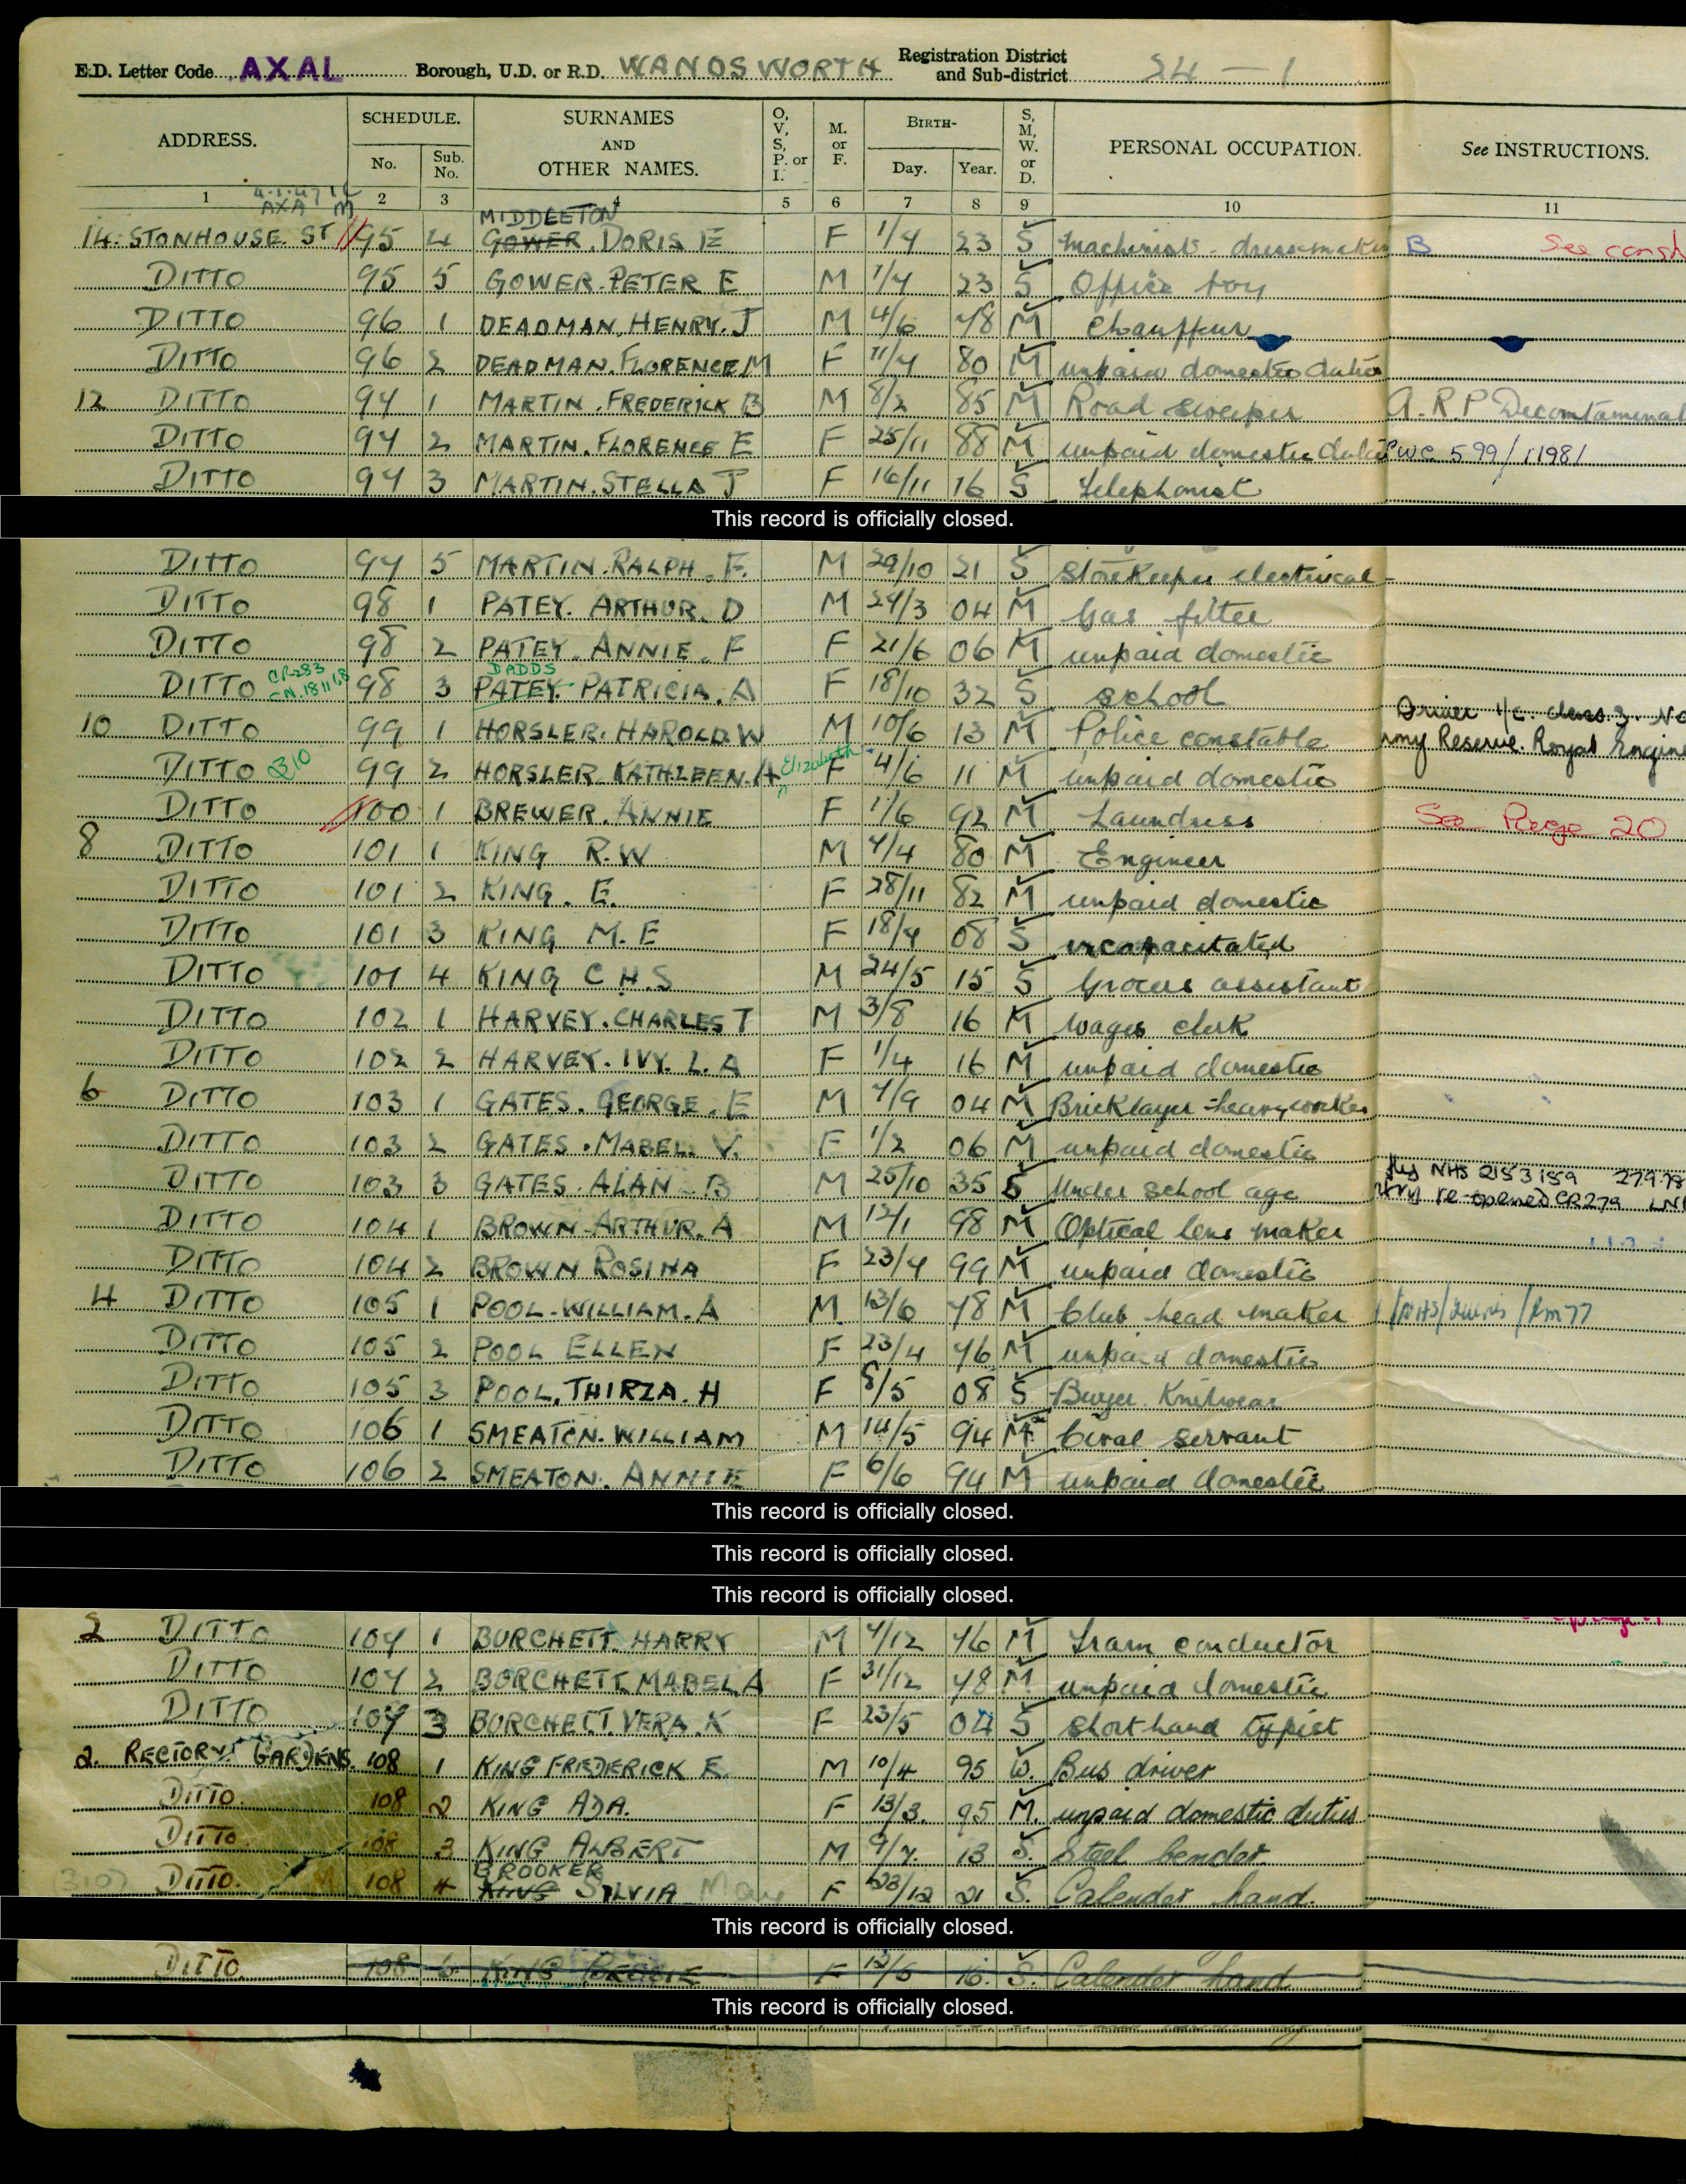 E.D. Letter Code AXAL Borough, U.D. or R.D. WANDSWORTH Registration District and Sub-district 24 — 1
ADDRESS. SCHEDULE. No. Sub. No. SURNAMES AND OTHER NAMES. O, V, S, P. or I. M. or F. BIRTH- Day. Year. S, M, W. or D. PERSONAL OCCUPATION. See INSTRUCTIONS.
1 2 3 4 5 6 7 8 9 10 11
AXA
MIDDLETON
14. STONHOUSE ST 95 4 GOWER. DORIS E F 1/7 23 S Machinist - dressmaker B See
DITTO 95 5 GOWER. PETER E M 1/7 23 S Office boy
DITTO 96 1 DEADMAN. HENRY. J M 4/6 78 M Chauffeur
DITTO 96 2 DEADMAN. FLORENCE M F 11/7 80 M unpaid domestic duties
12 DITTO 97 1 MARTIN. FREDERICK B M 8/2 85 M Road sweeper A.R.P Decontaminat
DITTO 97 2 MARTIN. FLORENCE E F 25/11 88 M unpaid domestic duties PWC 599/11981
DITTO 97 3 MARTIN. STELLA J F 16/11 16 S Telephonist
This record is officially closed.
DITTO 97 5 MARTIN. RALPH. F. M 29/10 21 S Storekeeper electrical
DITTO 98 1 PATEY. ARTHUR. D M 27/3 04 M Gas fitter
DITTO 98 2 PATEY. ANNIE. F F 21/6 06 M unpaid domestic
CR283 DADDS
DITTO 98 3 PATEY. PATRICIA. A F 18/10 32 S school
Driver i/c. class 3.
10 DITTO 99 1 HORSLER. HAROLD. W M 10/6 13 M Police constable my Reserve. Royal Engine
DITTO 310 99 2 HORSLER. KATHLEEN. A Elizabeth F 4/6 11 M unpaid domestic
DITTO 100 1 BREWER. ANNIE F 1/6 92 M Laundress See Page 20
8 DITTO 101 1 KING R.W M 7/4 80 M Engineer
DITTO 101 2 KING. E. F 28/11 82 M unpaid domestic
DITTO 101 3 KING M.E F 18/7 08 S incapacitated
DITTO 101 4 KING C.H.S M 24/5 15 S Grocers assistant
DITTO 102 1 HARVEY. CHARLES T M 3/8 16 M Wages clerk
DITTO 102 2 HARVEY. IVY. L. A F 1/4 16 M unpaid domestic
6 DITTO 103 1 GATES. GEORGE. E M 7/9 04 M Bricklayer - heavy worker
DITTO 103 2 GATES. MABEL. V. F 1/2 06 M unpaid domestic
NHS 2153159 27.9.78
DITTO 103 3 GATES. ALAN. B M 25/10 35 S Under school age re-opened CR279
DITTO 104 1 BROWN ARTHUR. A M 12/1 98 M Optical lens maker
DITTO 104 2 BROWN ROSINA F 23/7 99 M unpaid domestic
4 DITTO 105 1 POOL. WILLIAM. A M 13/6 78 M Club head maker
DITTO 105 2 POOL ELLEN F 23/4 76 M unpaid domestic
DITTO 105 3 POOL. THIRZA. H F 8/5 08 S Buyer Knitwear
DITTO 106 1 SMEATON. WILLIAM M 14/5 94 M Civil servant
DITTO 106 2 SMEATON. ANNIE F 6/6 94 M unpaid domestic
This record is officially closed.
This record is officially closed.
This record is officially closed.
2 DITTO 107 1 BURCHETT. HARRY M 7/12 76 M Tram conductor
DITTO 107 2 BURCHETT. MABEL. A F 31/12 78 M unpaid domestic
DITTO 107 3 BURCHETT. VERA. K F 23/5 04 S shorthand typist
2. RECTORY GARDENS. 108 1 KING FREDERICK E. M 10/4 95 W. Bus driver
DITTO. 108 2 KING ADA. F 13/3. 95 M. unpaid domestic duties
DITTO 108 3 KING ALBERT M 9/7. 13 S. Steel bender.
BROOKER
DITTO. 108 4 KING SILVIA May F 28/12 21 S. Calender hand.
This record is officially closed.
DITTO. 108 6 KING BESSIE F 13/5 16. S. Calender hand
This record is officially closed.